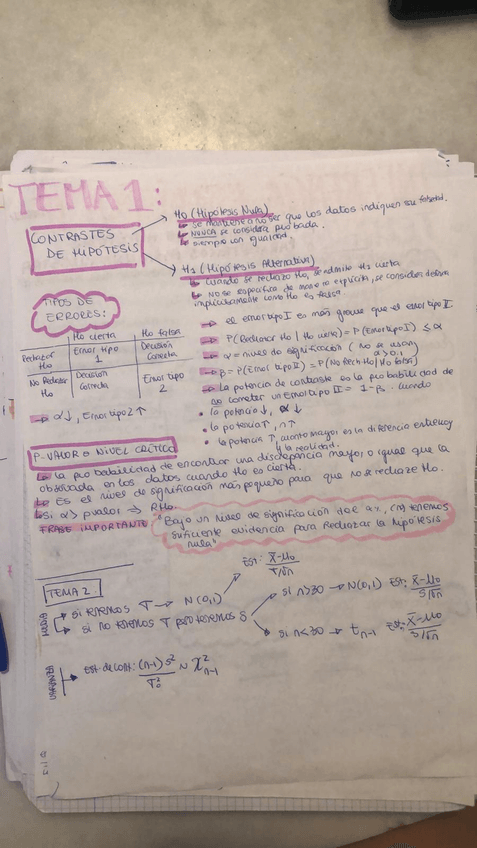 TEMA 1:
CONTRASTES
DE HIPÓTESIS
H0 (Hipótesis Nula)
↳ se mantiene a no ser que los datos indiquen su falsedad.
↳ NUNCA se considera probada.
↳ siempre con igualdad.
H1 (Hipótesis Alternativa)
↳ cuando se rechaza H0, se admite H1 cierta
↳ No se especifica de manera explícita, se considera definida
implícitamente como H0 es falsa.
TIPOS DE
ERRORES:
H0 cierta H0 falsa
Rechazar H0 Error tipo 1 Decisión Correcta
No Rechazar H0 Decisión Correcta Error tipo 2
→ α↓, Error tipo 2 ↑
→ el error tipo I es más grave que el error tipo II.
→ P(Rechazar H0 | H0 cierta) = P(Error tipo I) ≤ α
→ α = nivel de significación (no se usan α > 0,1)
→ β = P(Error tipo II) = P(No Rech H0 | H0 falsa)
→ La potencia de contraste es la probabilidad de
no cometer un Error tipo II = 1-β. cuando
• la potencia ↓, α↓.
• la potencia ↑, n ↑
• la potencia ↑, cuanto mayor es la diferencia entre
y la realidad.
P-VALOR O NIVEL CRÍTICO
↳ la probabilidad de encontrar una discrepancia mayor o igual que la
observada en los datos cuando H0 es cierta.
↳ Es el nivel de significación más pequeño para que no se rechaze H0.
↳ Si α > pvalor ⇒ RH0.
FRASE IMPORTANTE "Bajo un nivel de significación de α%, (n) tenemos
suficiente evidencia para Rechazar la hipótesis
nula"
TEMA 2
MEDIA
↳ si tenemos σ → N(0,1)
Est: x̄-μ0 / σ/√n
↳ si no tenemos σ pero tenemos S
si n>30 → N(0,1) Est: x̄-μ0 / S/√n
si n<30 → t n-1 Est: x̄-μ0 / S/√n
VARIANZA
Est de cont: (n-1)S² / σ0² ~ χ² n-1